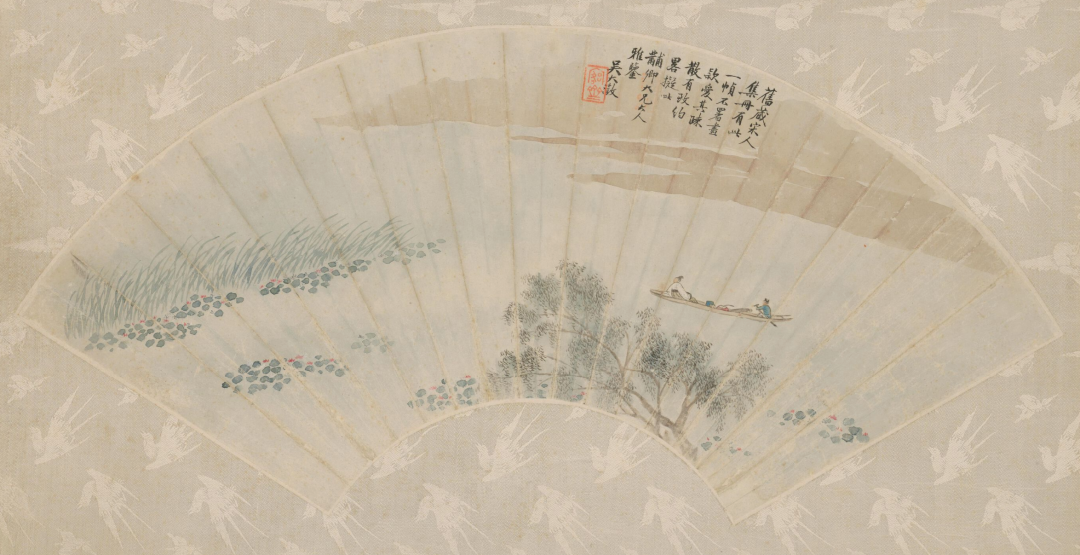 舊藏宋人
集冊有此
一幀不署畫
款愛其疎
散有致約
畧擬之
黼卿大兄大人
雅鑒
吳大澂